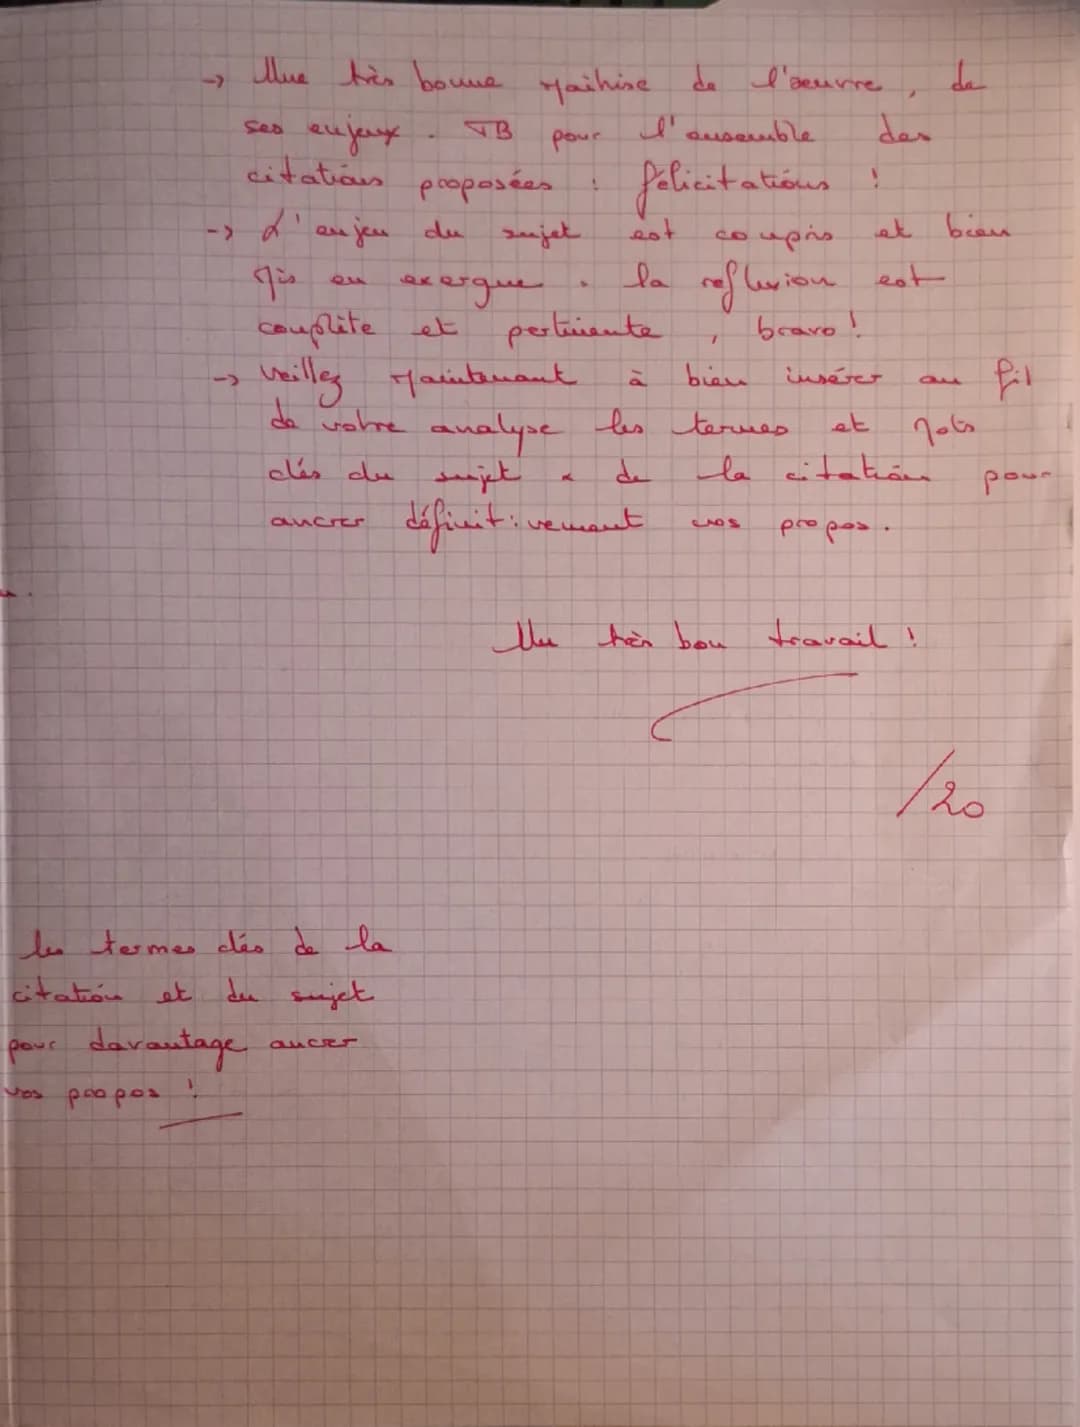 -> Une très bonne maîtrise de l'œuvre, de
ses enjeux. TB pour l'ensemble des
citations proposées : félicitations !
-> L'enjeu du sujet est compris et bien
mis en exergue. la réflexion est
complète et pertinente, bravo !
-> Veillez maintenant à bien insérer au fil
de votre analyse les termes et mots
clés du sujet & de la citation pour
ancrer définitivement vos propos.
Un très bon travail !
/20
les termes clés de la
citation et du sujet
pour davantage ancrer
vos propos !